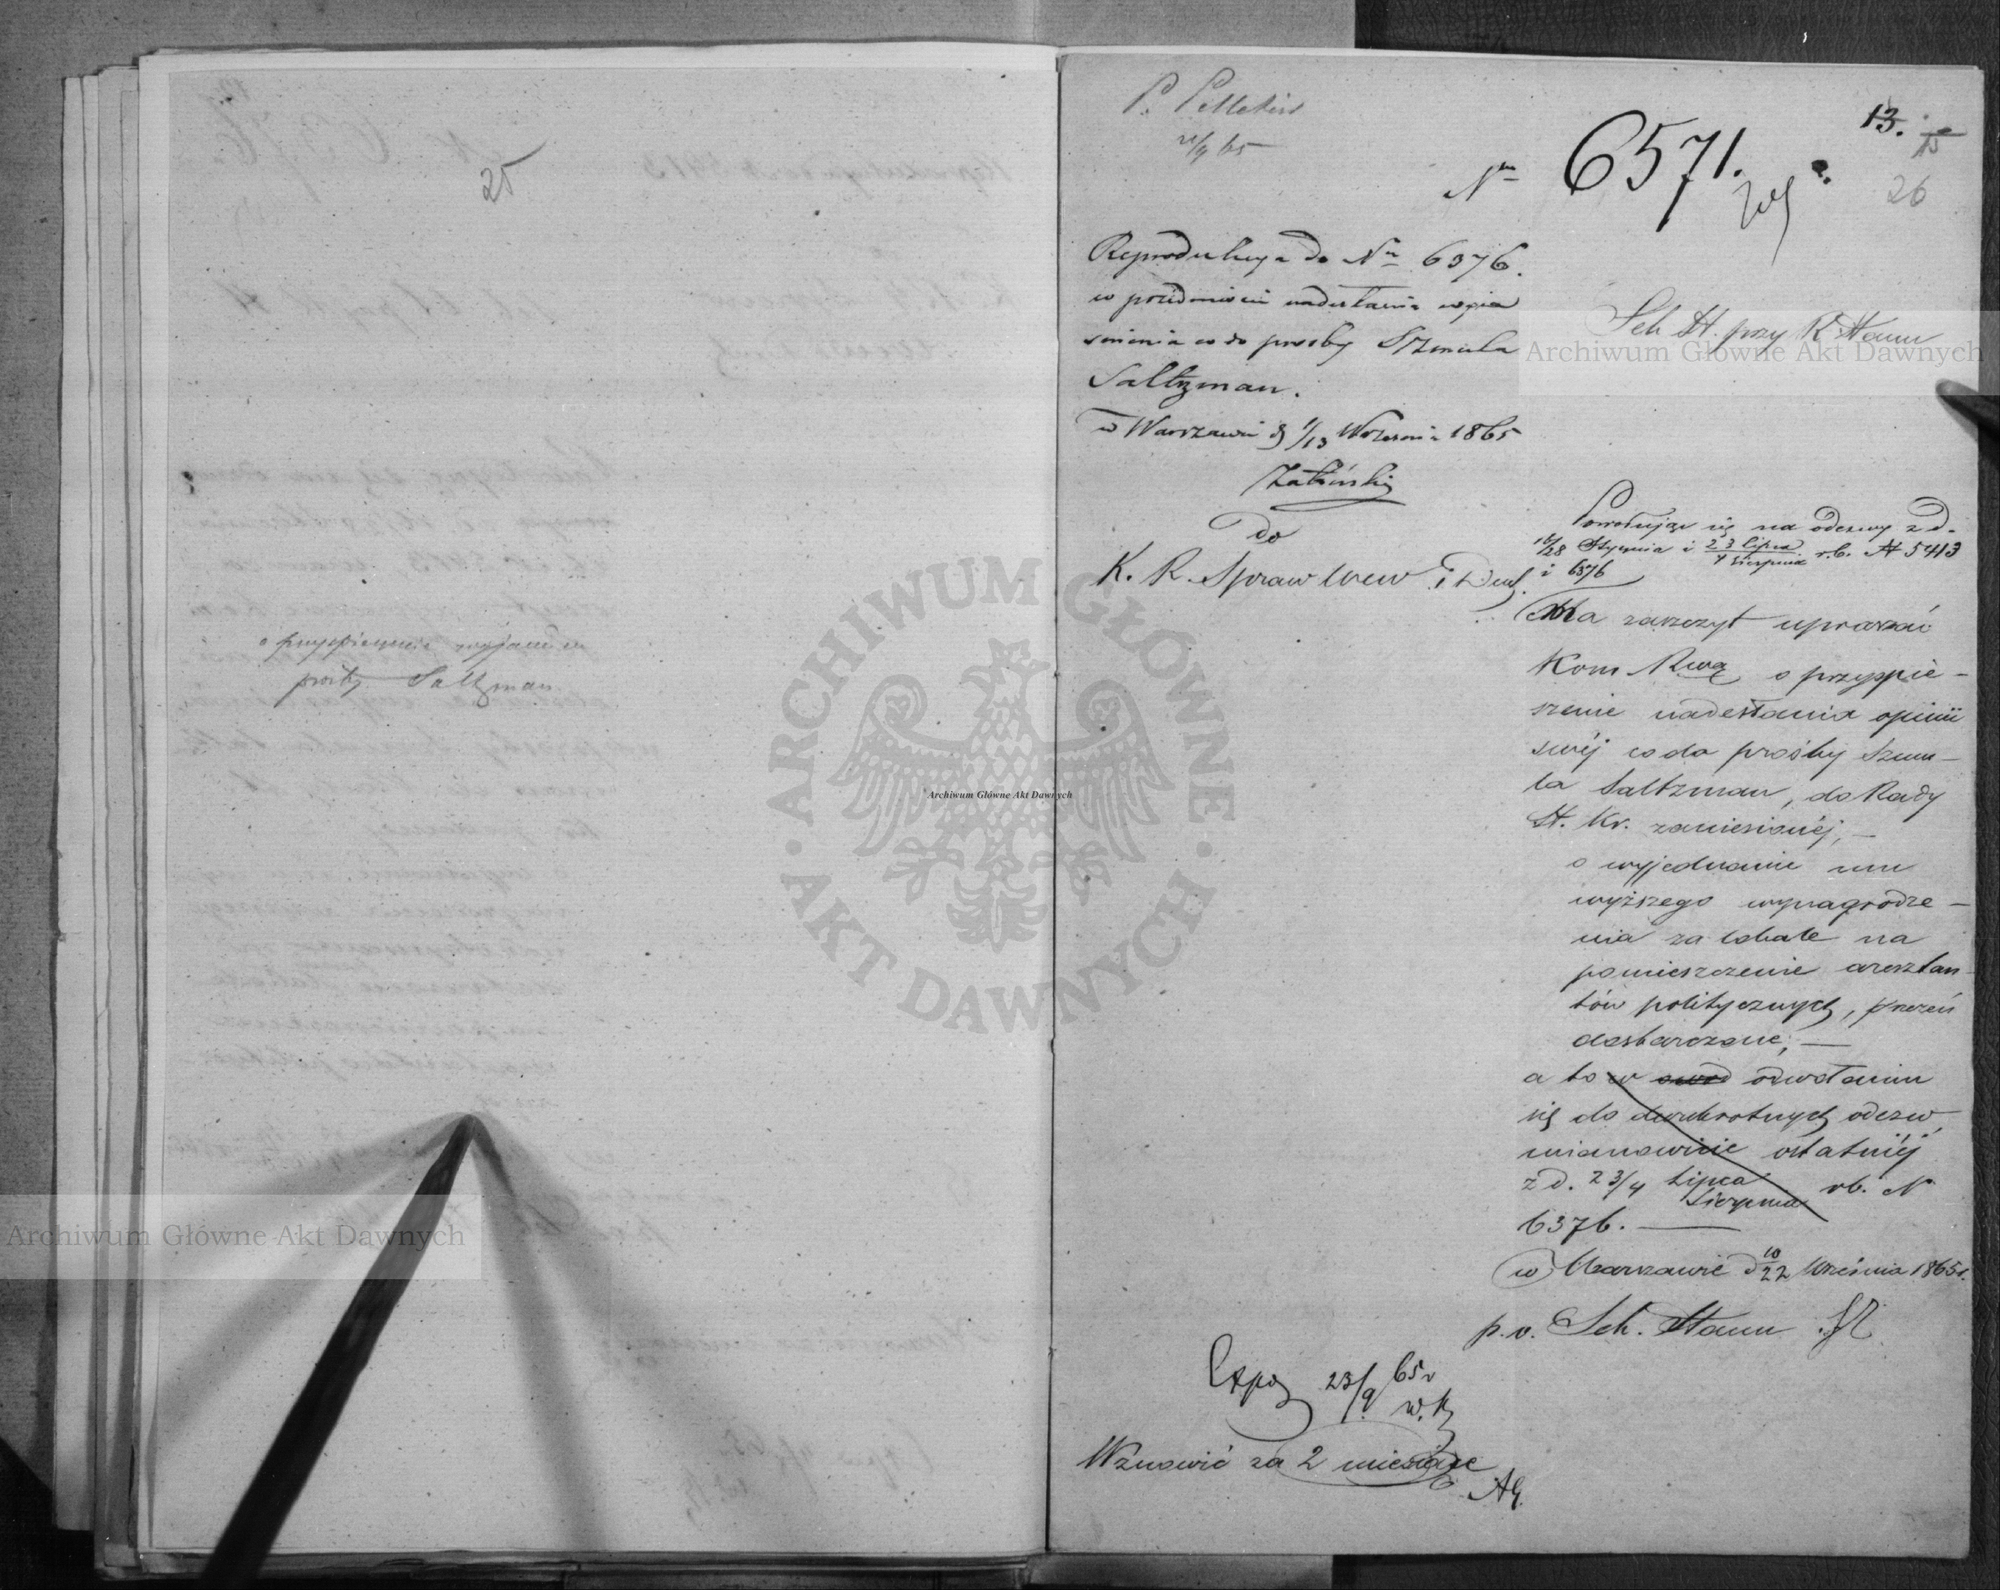 25
o przyspieszenie wyjaśn. w
prośby Saltzman.
P. Pelletier
21/9 65
Nr 6571.
13.
15
26
Reprodukcya do Nr 6376.
w przedmiocie nadesłania wyja
śnienia co do prośby Szmula
Saltzman.
w Warszawie d 1/13 Września 1865
Załuński
do
K. R. Spraw Wew. i Duch.
Sek St. przy R Stanu
Powołując się na odezwy z d.
16/28 Stycznia i 23 Lipca/4 Sierpnia r.b. N 5413
i 6376
Ma zaszczyt upraszać
Kom Rwą o przyspie-
szenie nadesłania opinii
swéj co do prośby Szmu-
la Saltzman, do Rady
St. Kr. zaniesionéj, —
o wyjednanie mu
wyższego wynagrodze-
nia za lokale na
pomieszczenie aresztan-
tów politycznych, przezeń
dostarczone; —
a to w odwołaniu
się do dwukrotnych odezw,
mianowicie ostatniéj
z d. 23/4 Lipca/Sierpnia rb. N
6376. —
w Warszawie d 10/22 Września 1865 r.
p. o. Sek. Stanu
Exp. 23/9 65 r
w. K
Wznowić za 2 miesiące
AG.
Archiwum Główne Akt Dawnych
Archiwum Główne Akt Dawnych
Archiwum Główne Akt Dawnych
ARCHIWUM GŁÓWNE · AKT DAWNYCH ·